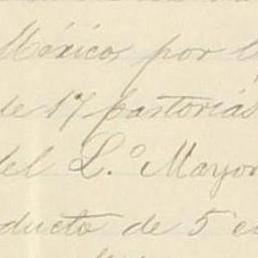 México por
de 17 pastorias
del L.º Mayor
ducto de 5